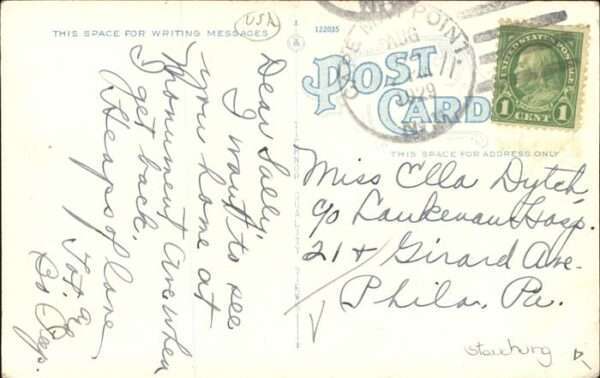 THIS SPACE FOR WRITING MESSAGES
USA
122035
POST
CARD
THIS SPACE FOR ADDRESS ONLY
CAPE MAY POINT,
AUG
11
1929
N.J.
UNITED STATES POSTAGE
1 CENT 1
Dear Sally,
I want to see
you home at
Monument Ave when
I get back.
Heaps of love
Tot &
Bo. Peep.
Miss Ella Dytch
c/o Lankenau Hosp.
21 + Girard Ave.
Phila. Pa.